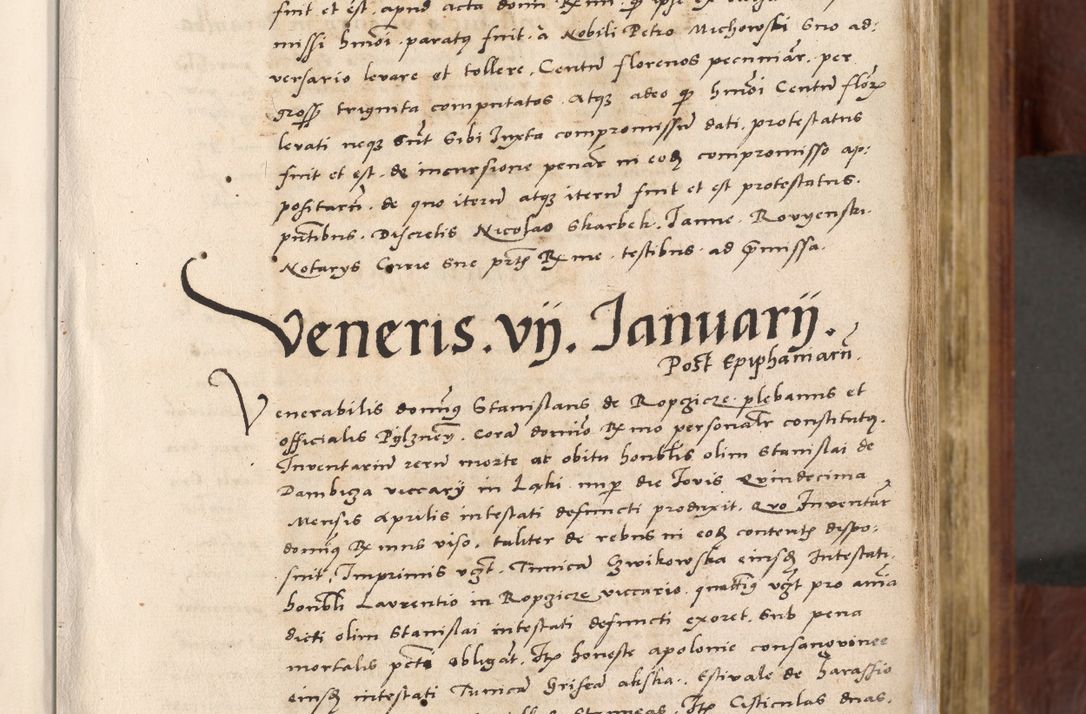 fuit et est, apud acta domini R mi. ꝙ ipse ex
missi hmōi. paratꝯ fuit. a Nobili Petro Michowski suo ad:
versario levare et tollere. Centū florenos pecuniār. per
gross triginta computatos. Atqꝫ adeo ꝙ hmōi Centū flōꝝ
levati neqꝫ sūt sibi Iuxta compromissū dati. protestatus
fuit et est. de incursione penaꝝ in eodē compromisso ap:
positarū. de quo iterū atqꝫ iterū fuit et est protestatus.
pn̄tibus. Discretis Nicolao Skarbek. Ianne. Rovyenski.
Notarys Curie sue pn̄tis R me. testibus. ad p̄missa.
Veneris. vij. Ianuarij.
Post Epiphaniarū.
Venerabilis domīnꝯ Stanislaus de Ropczicze. plebanus et
officialis Pylzneñ. Corā domīo R mo personalr̄ constitutꝯ.
Inventariū rerū morte ac obitu honbīlis olim Stanislai de
Dambicza viccarÿ in Ląki nup die Iovis Qvindecima
Mensis Aprilis intestati defuncti produxit. Qvo Inventar̄
domīnꝯ R mus viso, taliter de rebus in eodē contentis dispo:
suit. Imprimis vꝫt. Tunicā Czwikowska eiusdē Intestati.
honbīli Laurentio in Ropczicze viccario. quatīꝯ vꝫt pro aīa
dicti olim Stanislai intestati defuncti exoret. sub pena
mortalis pctī obligat. Itē honeste apolonie consangvinee
eiusdē intestati Tunicā Griseā aliska. Estivale de harassio